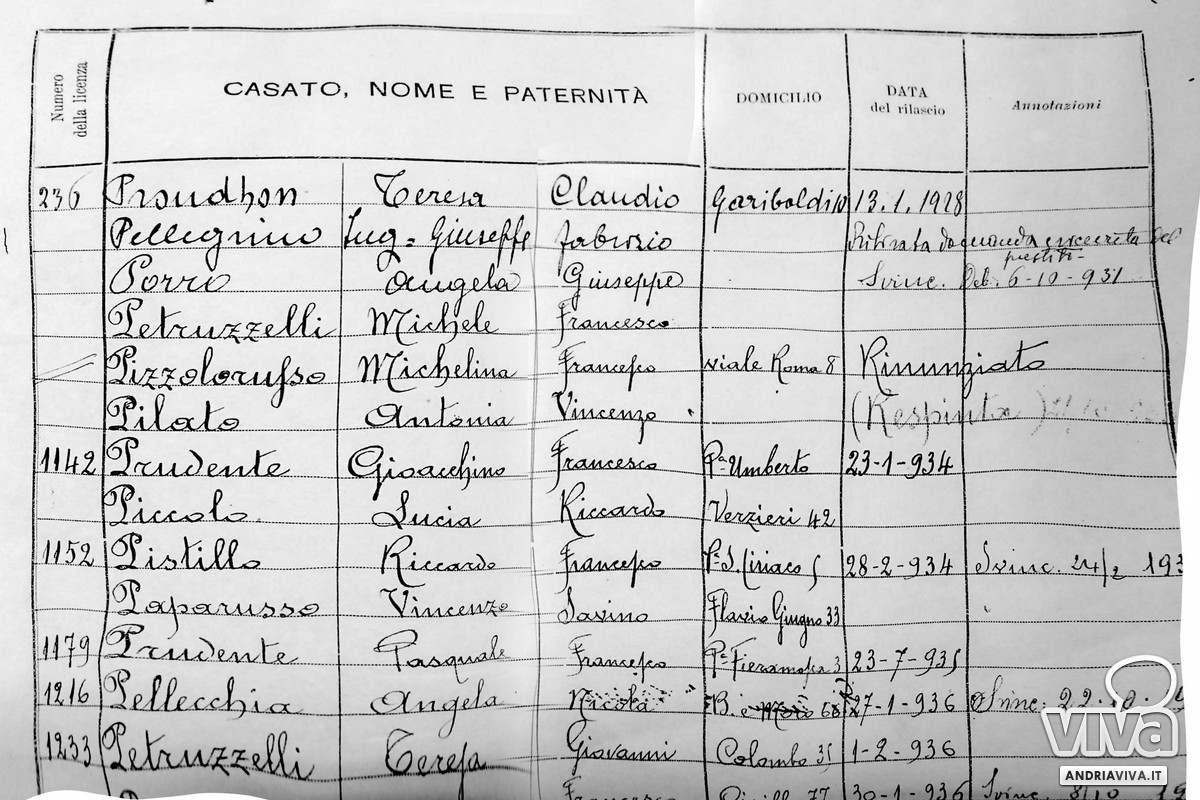 Numero della licenza CASATO, NOME E PATERNITÀ DOMICILIO DATA del rilascio Annotazioni
236 Proudhon Teresa Claudio Garibaldi 10 13.1.1928
Pellegrino Lug. Giuseppe Fabrizio Ritirata domanda
Porro Angela Giuseppe Svinc. 6-10-931
Petruzzelli Michele Francesco
Pizzolorusso Michelina Francesco viale Roma 8 Rinunziato
Pilato Antonia Vincenzo (Respinta)
1142 Prudente Gioacchino Francesco Pa Umberto 23-1-934
Piccolo Lucia Riccardo Verzieri 42
1152 Pistillo Riccardo Francesco 28-2-934 Svinc. 24/2 193
Paparusso Vincenzo Savino Flavio Giugno 33
1179 Prudente Pasquale Francesco Pa Fieramosca 3 23-7-935
1216 Pellecchia Angela Nicola 27-1-936 Svinc. 22
1233 Petruzzelli Teresa Giovanni Colombo 35 1-2-936
Francesco 77 30-1-936 Svinc. 8/10 19
viva
ANDRIAVIVA.IT